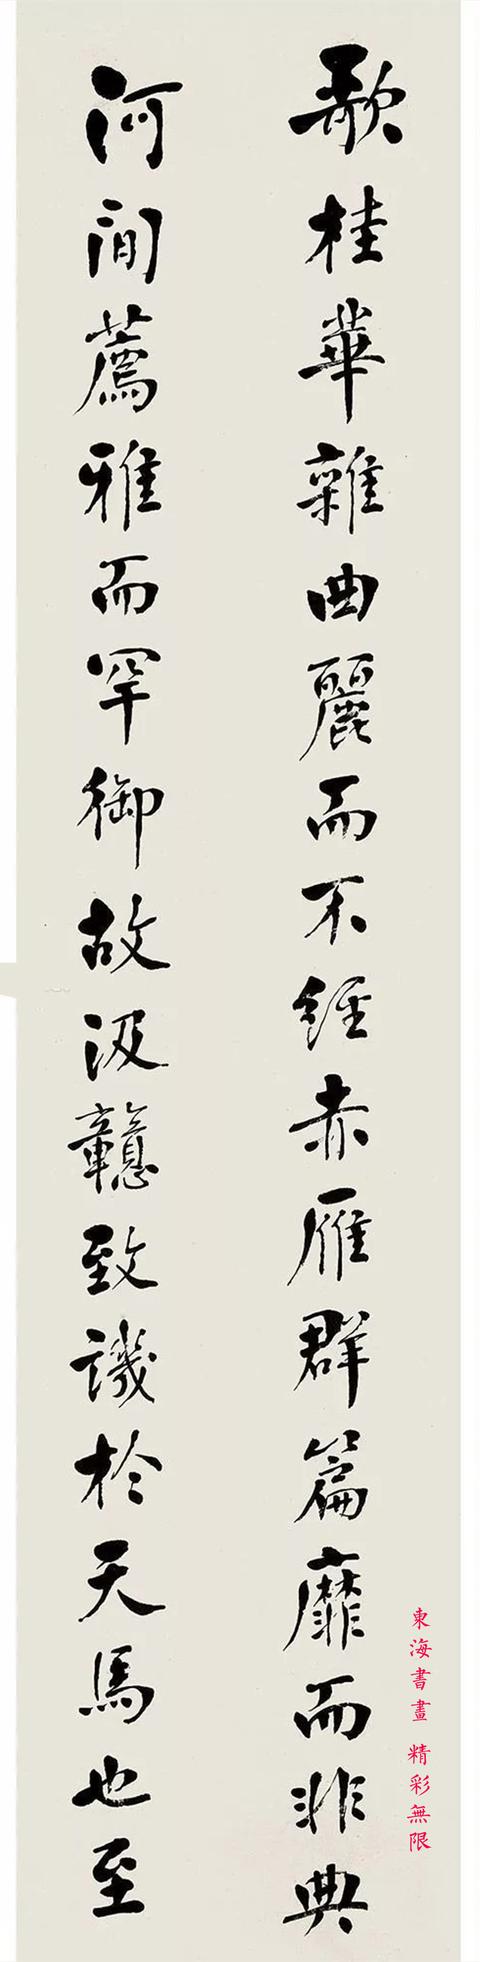 歌桂華雜曲麗而不經赤雁群篇靡而非典
河間薦雅而罕御故汲黯致譏於天馬也至
東海書畫 精彩無限